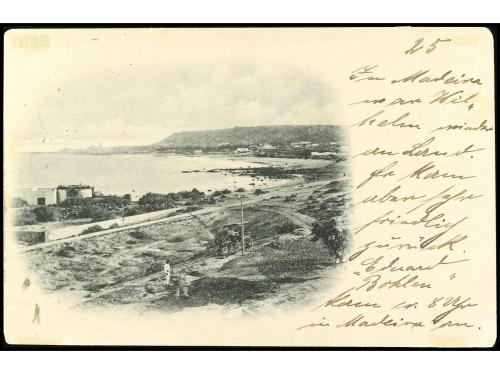 25
In Madeira
war Wil-
helm wieder
an Land
er kam
aber sehr
friedlig
zurück.
"Eduard
Bohlen"
kam v. 8 Uhr
in Madeira an.